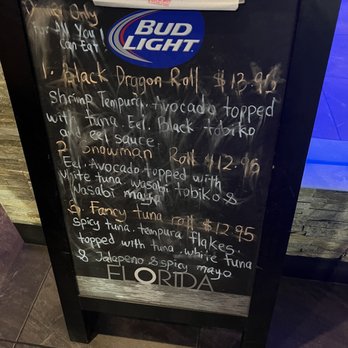 Only
For All You
Can Eat!
BUD
LIGHT
1. Black Dragon Roll $13.95
Shrimp Tempura. Avocado topped
with tuna. Eel. Black tobiko
and eel sauce
2. Snowman Roll $12.95
Eel. Avocado topped with
white tuna. wasabi tobiko &
wasabi mayo
3. Fancy tuna roll $12.95
spicy tuna. tempura flakes.
topped with tuna. white tuna
& Jalapeno & spicy mayo
FLORIDA